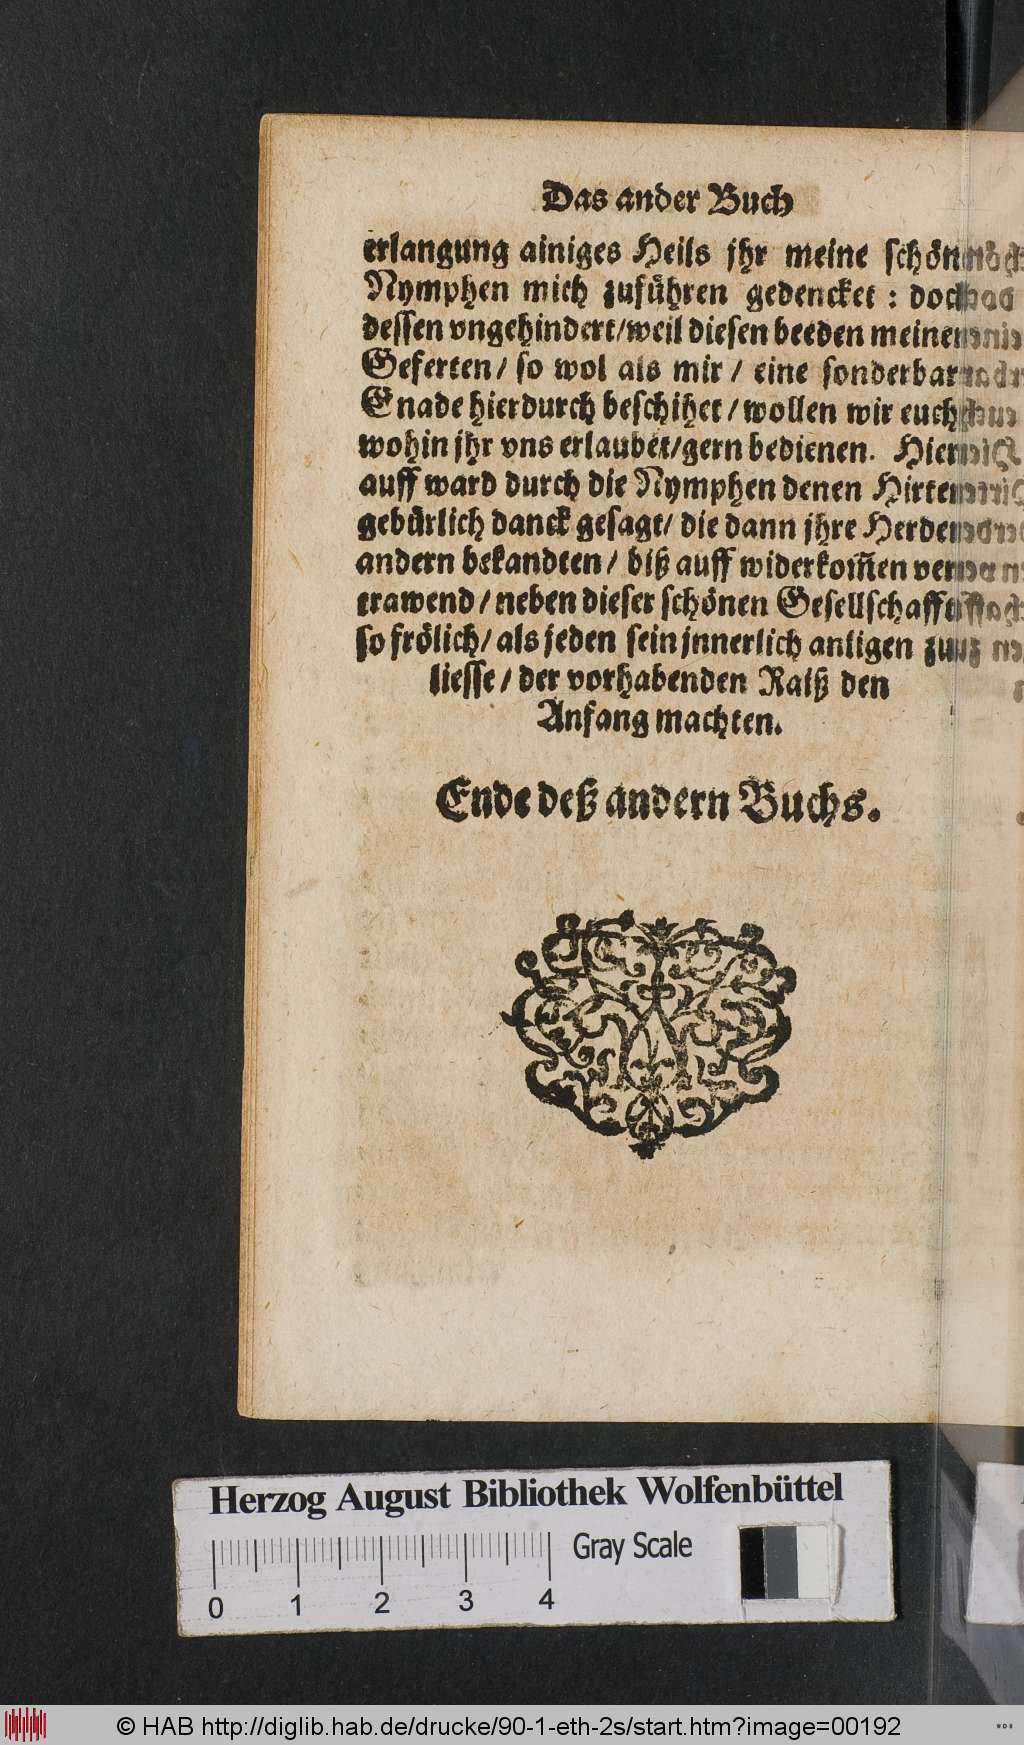 Das ander Buch
erlangung ainiges Heils jhr meine schön
Nymphen mich zuführen gedencket : doch
dessen vngehindert/weil diesen beeden meinen
Geferten / so wol als mir / eine sonderbar
Gnade hierdurch beschihet / wollen wir euch
wohin jhr vns erlaubet/gern bedienen. Hier
auff ward durch die Nymphen denen Hirten
gebürlich danck gesagt/ die dann jhre Herden
andern bekandten / biß auff widerkom̃en ver
trawend / neben dieser schönen Gesellschafft
so frölich/ als jeden sein jnnerlich anligen zu
liesse / der vorhabenden Raiß den
Anfang machten.
Ende deß andern Buchs.
Herzog August Bibliothek Wolfenbüttel
Gray Scale
0 1 2 3 4
© HAB http://diglib.hab.de/drucke/90-1-eth-2s/start.htm?image=00192